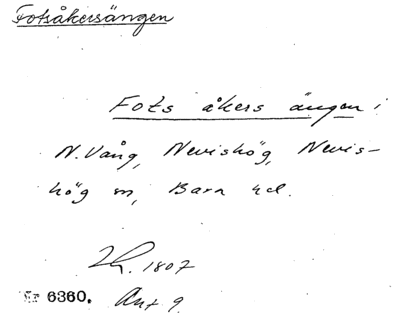 Fotsåkersängen
Fots åkers ängen i
N. Vång, Nevishög, Nevis-
hög sn, Bara hd.
1807
Nr 6360. Akt 9.